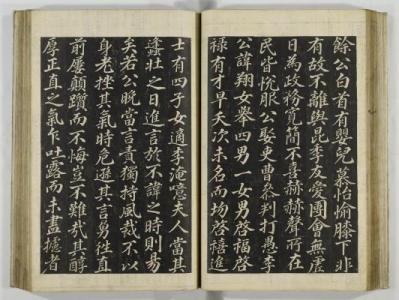 餘公白首有嬰兒慕怡愉膝下非
有故不離與昆季友愛團會無虛
日為政務寬簡不喜赫赫聲所在
民皆悅服公娶吏曹參判打愚李
公諱翔女舉四男一女男啓福啓
祿有才早夭次未名而殤啓禧進
士有四子女適李淹噫夫人當其
壯之日進言於不諱之時則易
矣若公晚當言責獨持風裁不以
身老挫其氣時危遜其言勇往直
前屢顛躓而不悔豈不難哉其醇
厚正直之氣乍吐露而未盡攄者